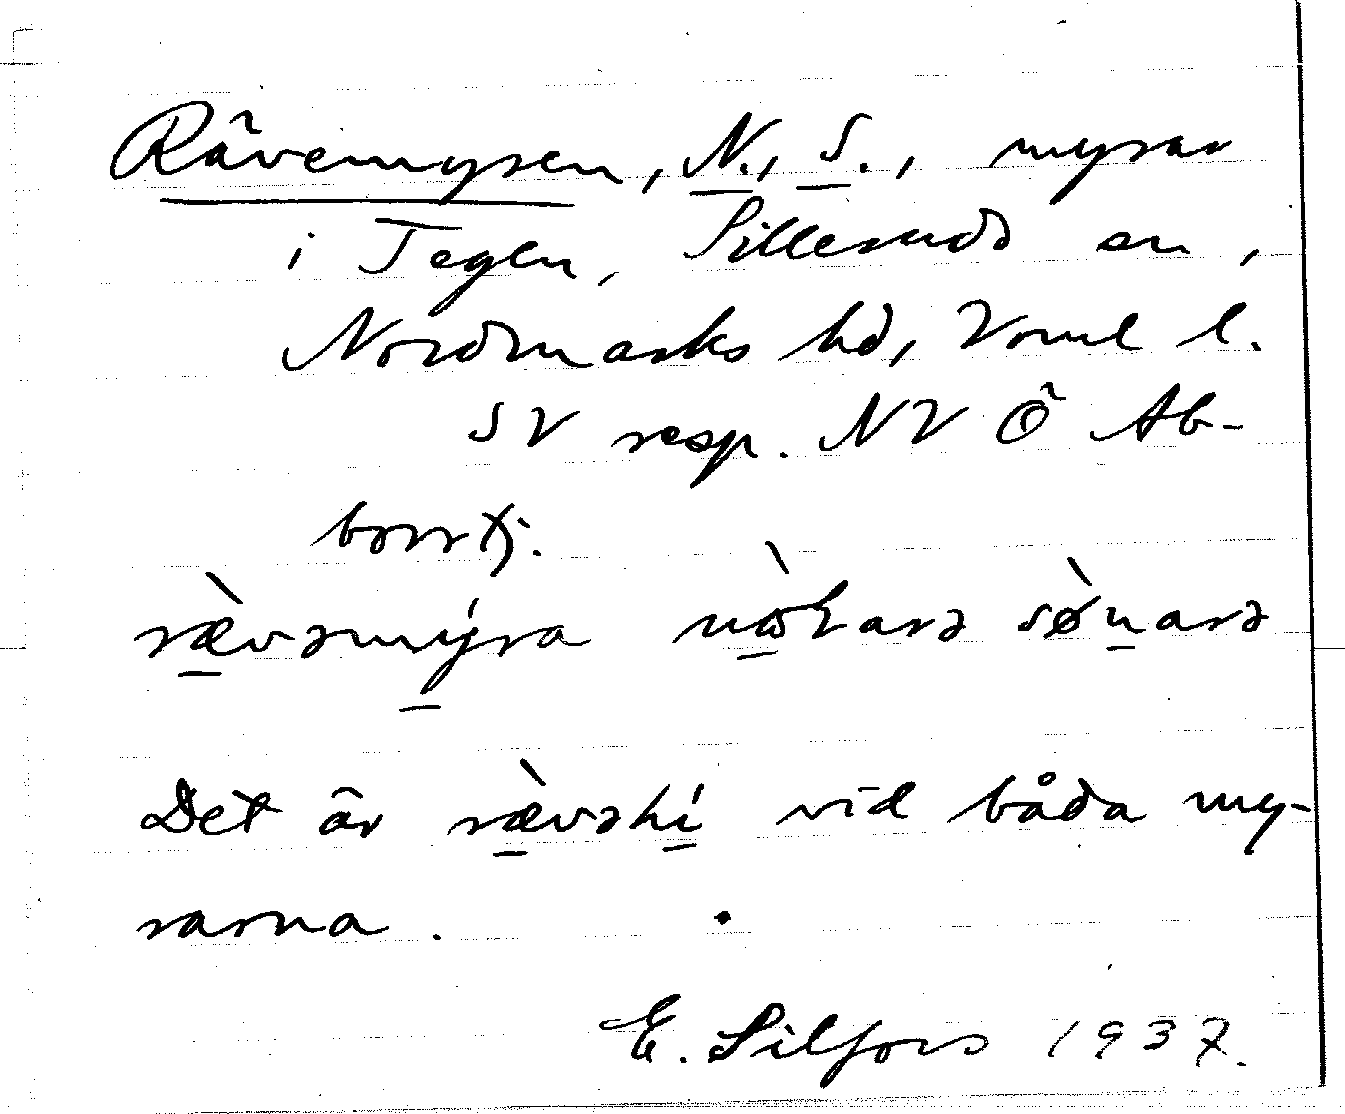 Rävemyren, N., S., myrar
i Tegen, Sillerudd sn,
Nordmarks hd, Vrml l.
SV resp. NV Ö Ab-
borrtj.
ræ̀vəmýra nòLarə sø̀narə
Det är ræ̀vəhí vid båda my-
rarna.
E. Silfors 1937.